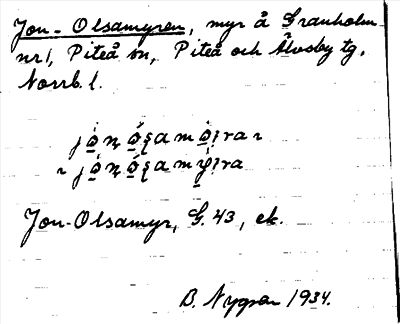 Jon-Olsamyren, myr å Granholm
nr 1, Piteå sn, Piteå och Älvsby tg,
Norrb. l.
Jon-Olsamyr, G. 43, ek.
B. Nygren 1934.